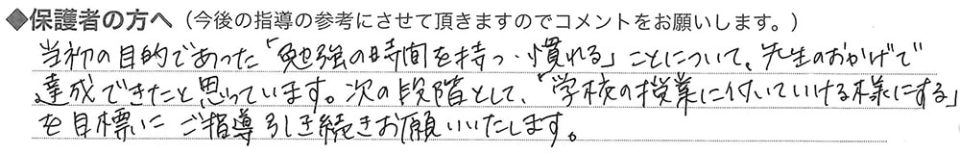 ◆保護者の方へ（今後の指導の参考にさせて頂きますのでコメントをお願いします。）
当初の目的であった「勉強の時間を持つ・慣れる」ことについて、先生のおかげで
達成できたと思っています。次の段階として、「学校の授業に付いていける様にする」
を目標に ご指導引き続きお願いいたします。